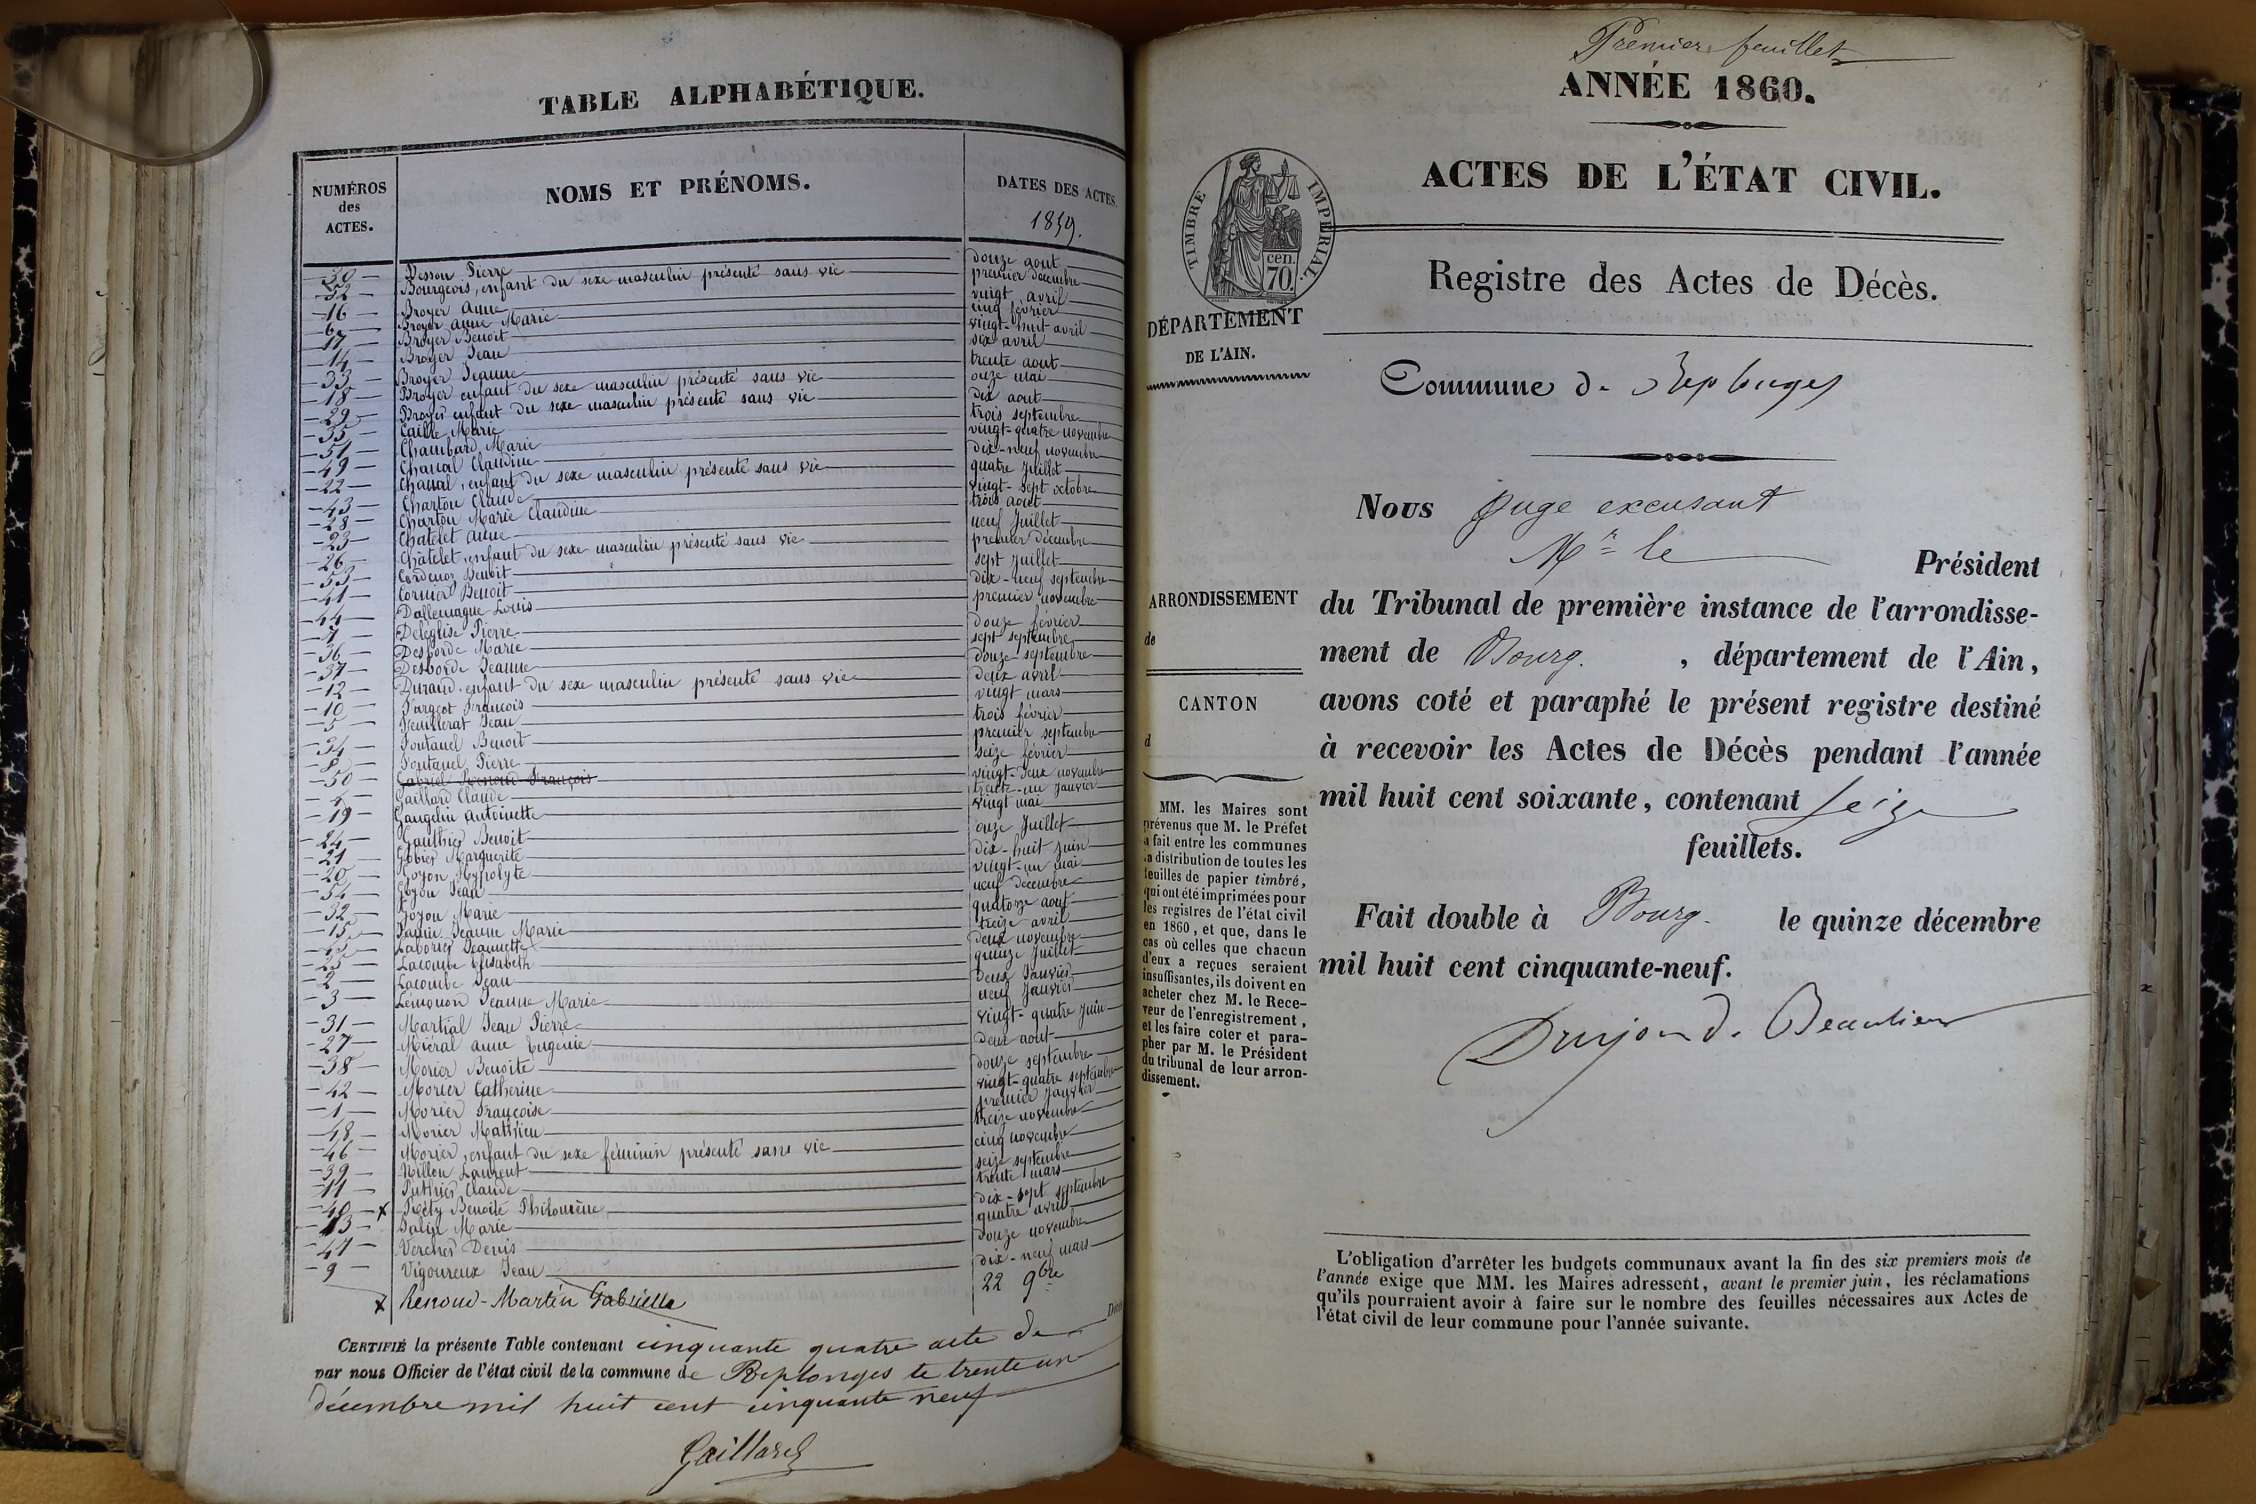 TABLE ALPHABÉTIQUE.
NUMÉROS des ACTES. NOMS ET PRÉNOMS. DATES DES ACTES. 1859.
30 Besson Pierre douze aout
52 Bourgeois, enfant du sexe masculin présenté sans vie premier décembre
16 Broyer Anne vingt avril
6 Broyer Anne Marie cinq février
17 Broyer Benoit vingt-huit avril
14 Broyer Jean six avril
33 Broyer Jeanne trente aout
18 Broyer enfant du sexe masculin présenté sans vie onze mai
29 Broyer enfant du sexe masculin présenté sans vie dix aout
35 Marie trois septembre
51 Chambard Marie vingt-quatre novembre
49 Chanal Claudine dix-neuf novembre
22 Chanal, enfant du sexe masculin présenté sans vie quatre Juillet
43 Charton Claude vingt-sept octobre
28 Charton Marie Claudine trois aout
23 Chatelet Anne neuf Juillet
26 Chatelet, enfant du sexe masculin présenté sans vie
53 Benoit premier décembre
Cornier Benoit sept Juillet
41 Dallemagne Louis dix-neuf septembre
44 Deléglise Pierre premier novembre
7 Desborde Marie douze février
36 Desborde Jeanne sept septembre
37 Durand enfant du sexe masculin présenté sans vie douze septembre
12 Fargeot François deux avril
10 Feuillerat Jean vingt mars
5 Fontanel Benoit trois février
34 Fontanel Pierre premier septembre
8 seize février
50 Gabriel Renoud François vingt-deux novembre
4 Gaillard Claude trente-un Janvier
19 Gaugelin Antoinette vingt mai
24 Gauthier Benoit onze Juillet
21 Gobier Marguerite dix-huit juin
20 Goyon Hypolyte vingt-un mai
54 Goyon Jean neuf décembre
32 Goyon Marie quatorze aout
15 Jeanne Marie treize avril
45 Laborier Jeannette deux novembre
25 Lacombe Elisabeth quinze Juillet
2 Lacombe Jean deux Janvier
3 Lémonon Jeanne Marie neuf Janvier
31 Martial Jean Pierre vingt-quatre Juin
27 Miéral Anne Eugenie deux aout
38 Morier Benoite douze septembre
42 Morier Catherine vingt-quatre septembre
1 Morier Françoise premier Janvier
48 Morier Mathieu treize novembre
46 Morier, enfant du sexe féminin présenté sans vie cinq novembre
39 Nillon Laurent seize septembre
11 Puthier Claude trente mars
40 x Réty Benoite Philomène dix-sept septembre
13 Salin Marie quatre avril
47 Vercher Denis douze novembre
9 Vigoureux Jean dix-neuf mars
x Renoud-Martin Gabrielle 22 9bre
CERTIFIÉ la présente Table contenant cinquante quatre acte de Décès
par nous Officier de l'état civil de la commune de Replonges le trente un
décembre mil huit cent cinquante neuf
Gaillard
Premier feuillet
ANNÉE 1860.
ACTES DE L'ÉTAT CIVIL.
TIMBRE IMPÉRIAL.
cen. 70.
Registre des Actes de Décès.
DÉPARTEMENT
DE L'AIN.
Commune de Replonges
Nous Juge excusant
Mr le Président
ARRONDISSEMENT
de
CANTON
d
du Tribunal de première instance de l'arrondisse-
ment de Bourg. , département de l'Ain,
avons coté et paraphé le présent registre destiné
à recevoir les Actes de Décès pendant l'année
mil huit cent soixante, contenant seize
feuillets.
Fait double à Bourg. le quinze décembre
mil huit cent cinquante-neuf.
Drujon de Beaulieu
MM. les Maires sont
prévenus que M. le Préfet
a fait entre les communes
la distribution de toutes les
feuilles de papier timbré,
qui ont été imprimées pour
les registres de l'état civil
en 1860, et que, dans le
cas où celles que chacun
d'eux a reçues seraient
insuffisantes, ils doivent en
acheter chez M. le Rece-
veur de l'enregistrement,
et les faire coter et para-
pher par M. le Président
du tribunal de leur arron-
dissement.
L'obligation d'arrêter les budgets communaux avant la fin des six premiers mois de
l'année exige que MM. les Maires adressent, avant le premier juin, les réclamations
qu'ils pourraient avoir à faire sur le nombre des feuilles nécessaires aux Actes de
l'état civil de leur commune pour l'année suivante.